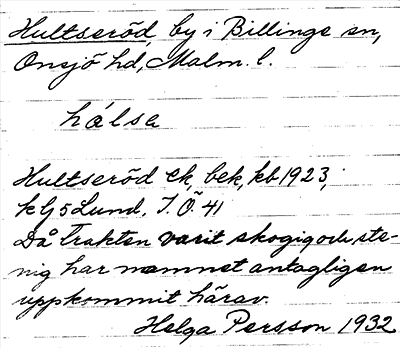 Hultseröd, by i Billinge sn,
Onsjö hd, Malm. l.
hálsa
Hultseröd ek, bek, kb 1923,
klj 5 Lund. I.Ö. 41
Då Trakten varit skogig och ste-
nig har namnet antagligen
uppkommit härav.
Helga Persson 1932